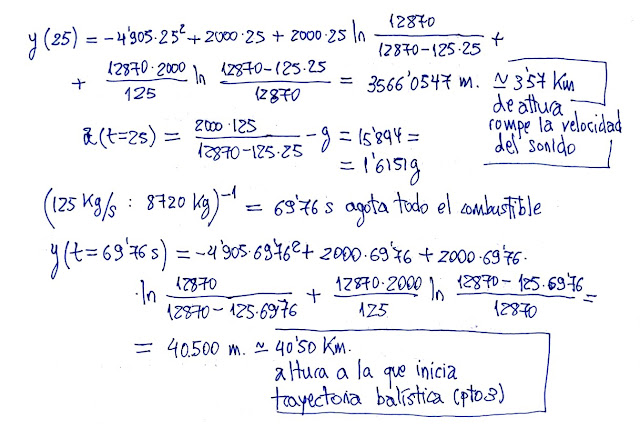 y(25) = -4'905·25² + 2000·25 + 2000·25 ln 12870/(12870-125·25) +
+ (12870·2000)/125 ln (12870-125·25)/12870 = 3566'0547 m. ≃ 3'57 Km
de altura
rompe la velocidad
del sonido
a(t=25) = (2000·125)/(12870-125·25) - g = 15'844 =
= 1'6151g
(125 Kg/s : 8720 Kg)⁻¹ = 69'76 s agota todo el combustible
y(t=69'76 s) = -4'905·69'76² + 2000·69'76 + 2000·69'76·
·ln 12870/(12870-125·69'76) + (12870·2000)/125 ln (12870-125·69'76)/12870 =
= 40.500 m. ≃ 40'50 Km.
altura a la que inicia
trayectoria balística (pto3)